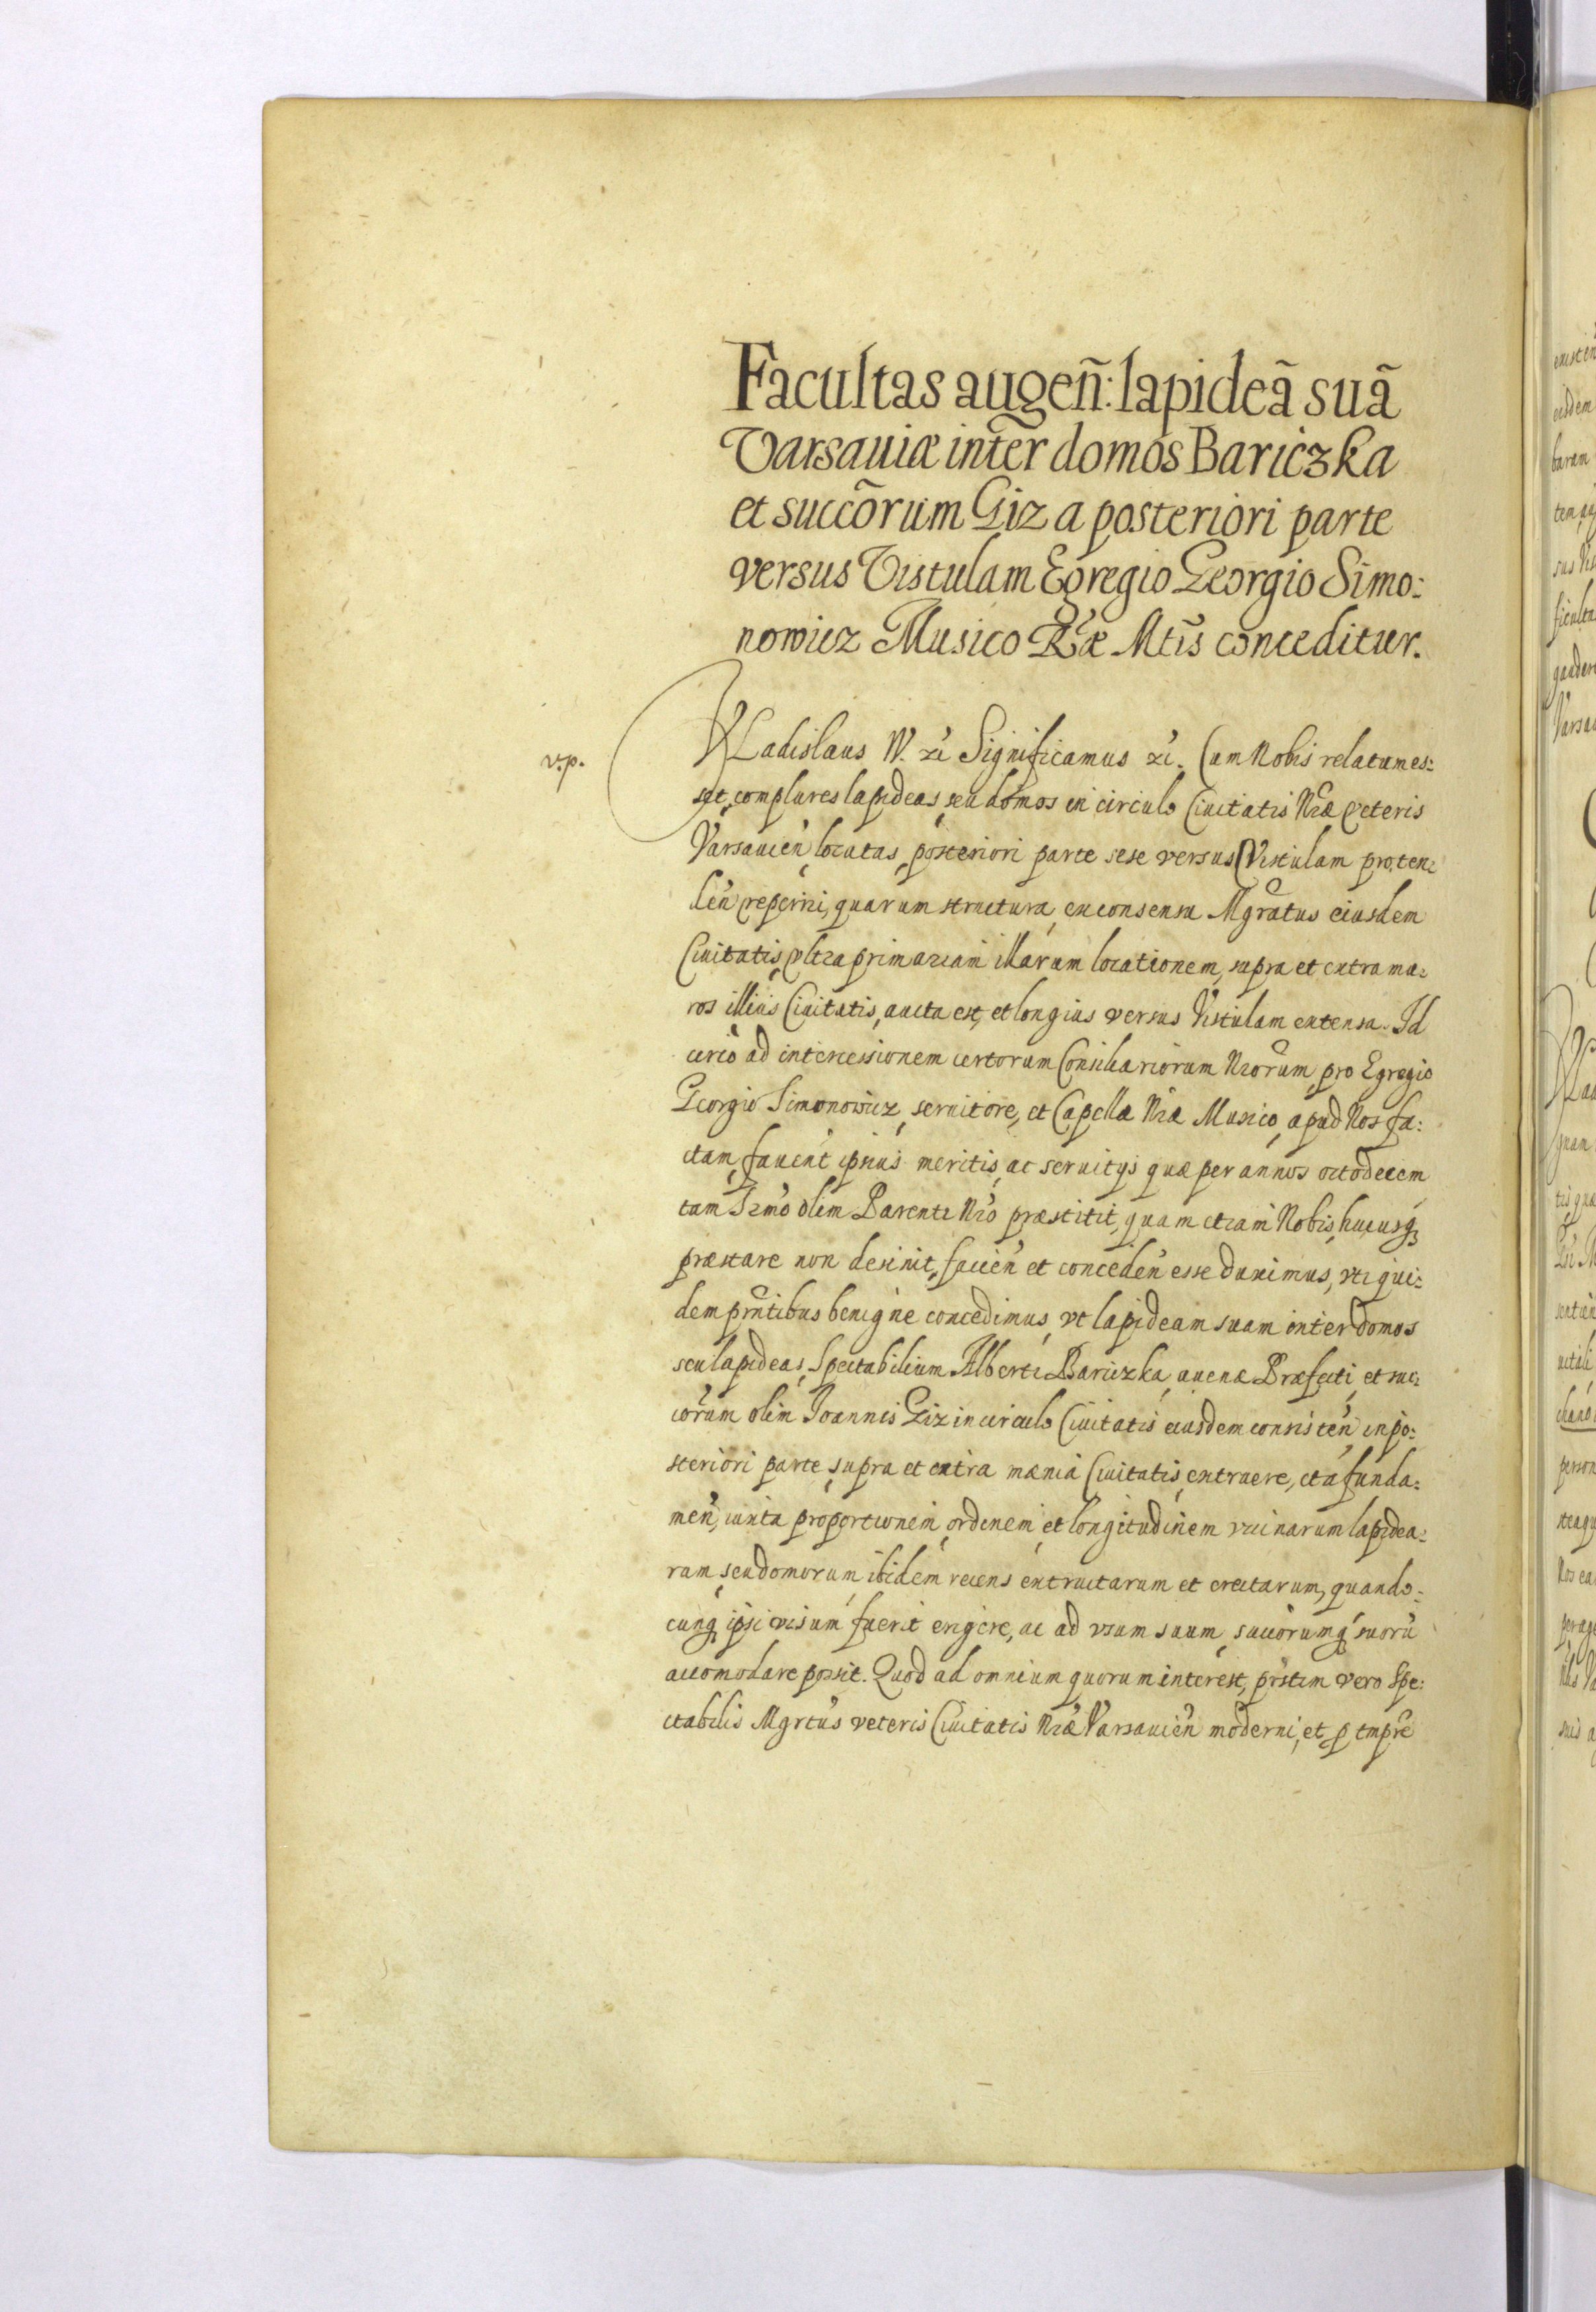 Facultas augeñ: lapideã suã
Varsauiæ inter domos Bariczka
et succõrum Giz a posteriori parte
versus Vistulam Egregio Georgio Simo:
nowicz Musico Ræ Mtis conceditur.
v.p.
Vladislaus IV. etc Significamus etc. Cum Nobis relatum es:
set, complures lapideas, seu domos in circulo Ciuitatis Nræ veteris
Varsauien̄ locatas, posteriori parte sese versus Vistulam proten:
den̄ reperiri, quarum structura, ex consensu Mgratus eiusdem
Ciuitatis, vltra primariam illarum locationem, supra et extra mu:
ros illius Ciuitatis, aucta est, et longius versus Vistulam extensa. Id
circo ad intercessionem certorum Consiliariorum Nrorum, pro Egregio
Georgio Simonowicz, seruitore, et Capellæ Nræ Musico, apud Nos fa:
ctam, fauent ipsius meritis, ac seruitys quæ per annos octodecem
tam Srmo olim Parenti Nro præstitit, quam etiam Nobis, hucusq
præstare non desinit, facien̄ et conceden̄ esse duximus, vti qui:
dem prntibus benigne concedimus, vt lapideam suam inter domos
seu lapideas, Spectabilium Alberti Bariczka, auenæ Præfecti, et suc:
corum olim Joannis Giz in circulo Ciuitatis eiusdem consisten̄, in po:
steriori parte, supra et extra mænia Ciuitatis, extruere, et a funda:
men̄, iuxta proportionem, ordinem, et longitudinem vicinarum lapidea:
rum, seu domorum, ibidem recens extructarum et erectarum, quando:
cunq ipsi visum fuerit erigere, ac ad vsum suum, succorumq suorū
accomodare possit. Quod ad omnium quorum interest, prstim vero Spe:
ctabilis Mgrtus veteris Ciuitatis Nræ Varsauien̄ moderni, et p tmpre